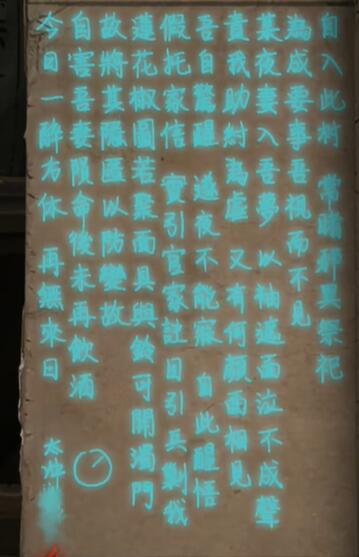 自入此村 常睹邪異祭祀
為成要事吾視而不見
某夜妻入吾夢 以袖遮面泣不成聲
責我助紂為虐 又有何顏面相見
吾自驚醒 遂夜不能寐 自此醒悟
假托家信 實引官家註目引兵剿我
蓮花椒圖若聚而具與 可開濁門
故將其隱匿以防變故
自害吾妻限命後未再飲酒
今日一醉方休 再無來日